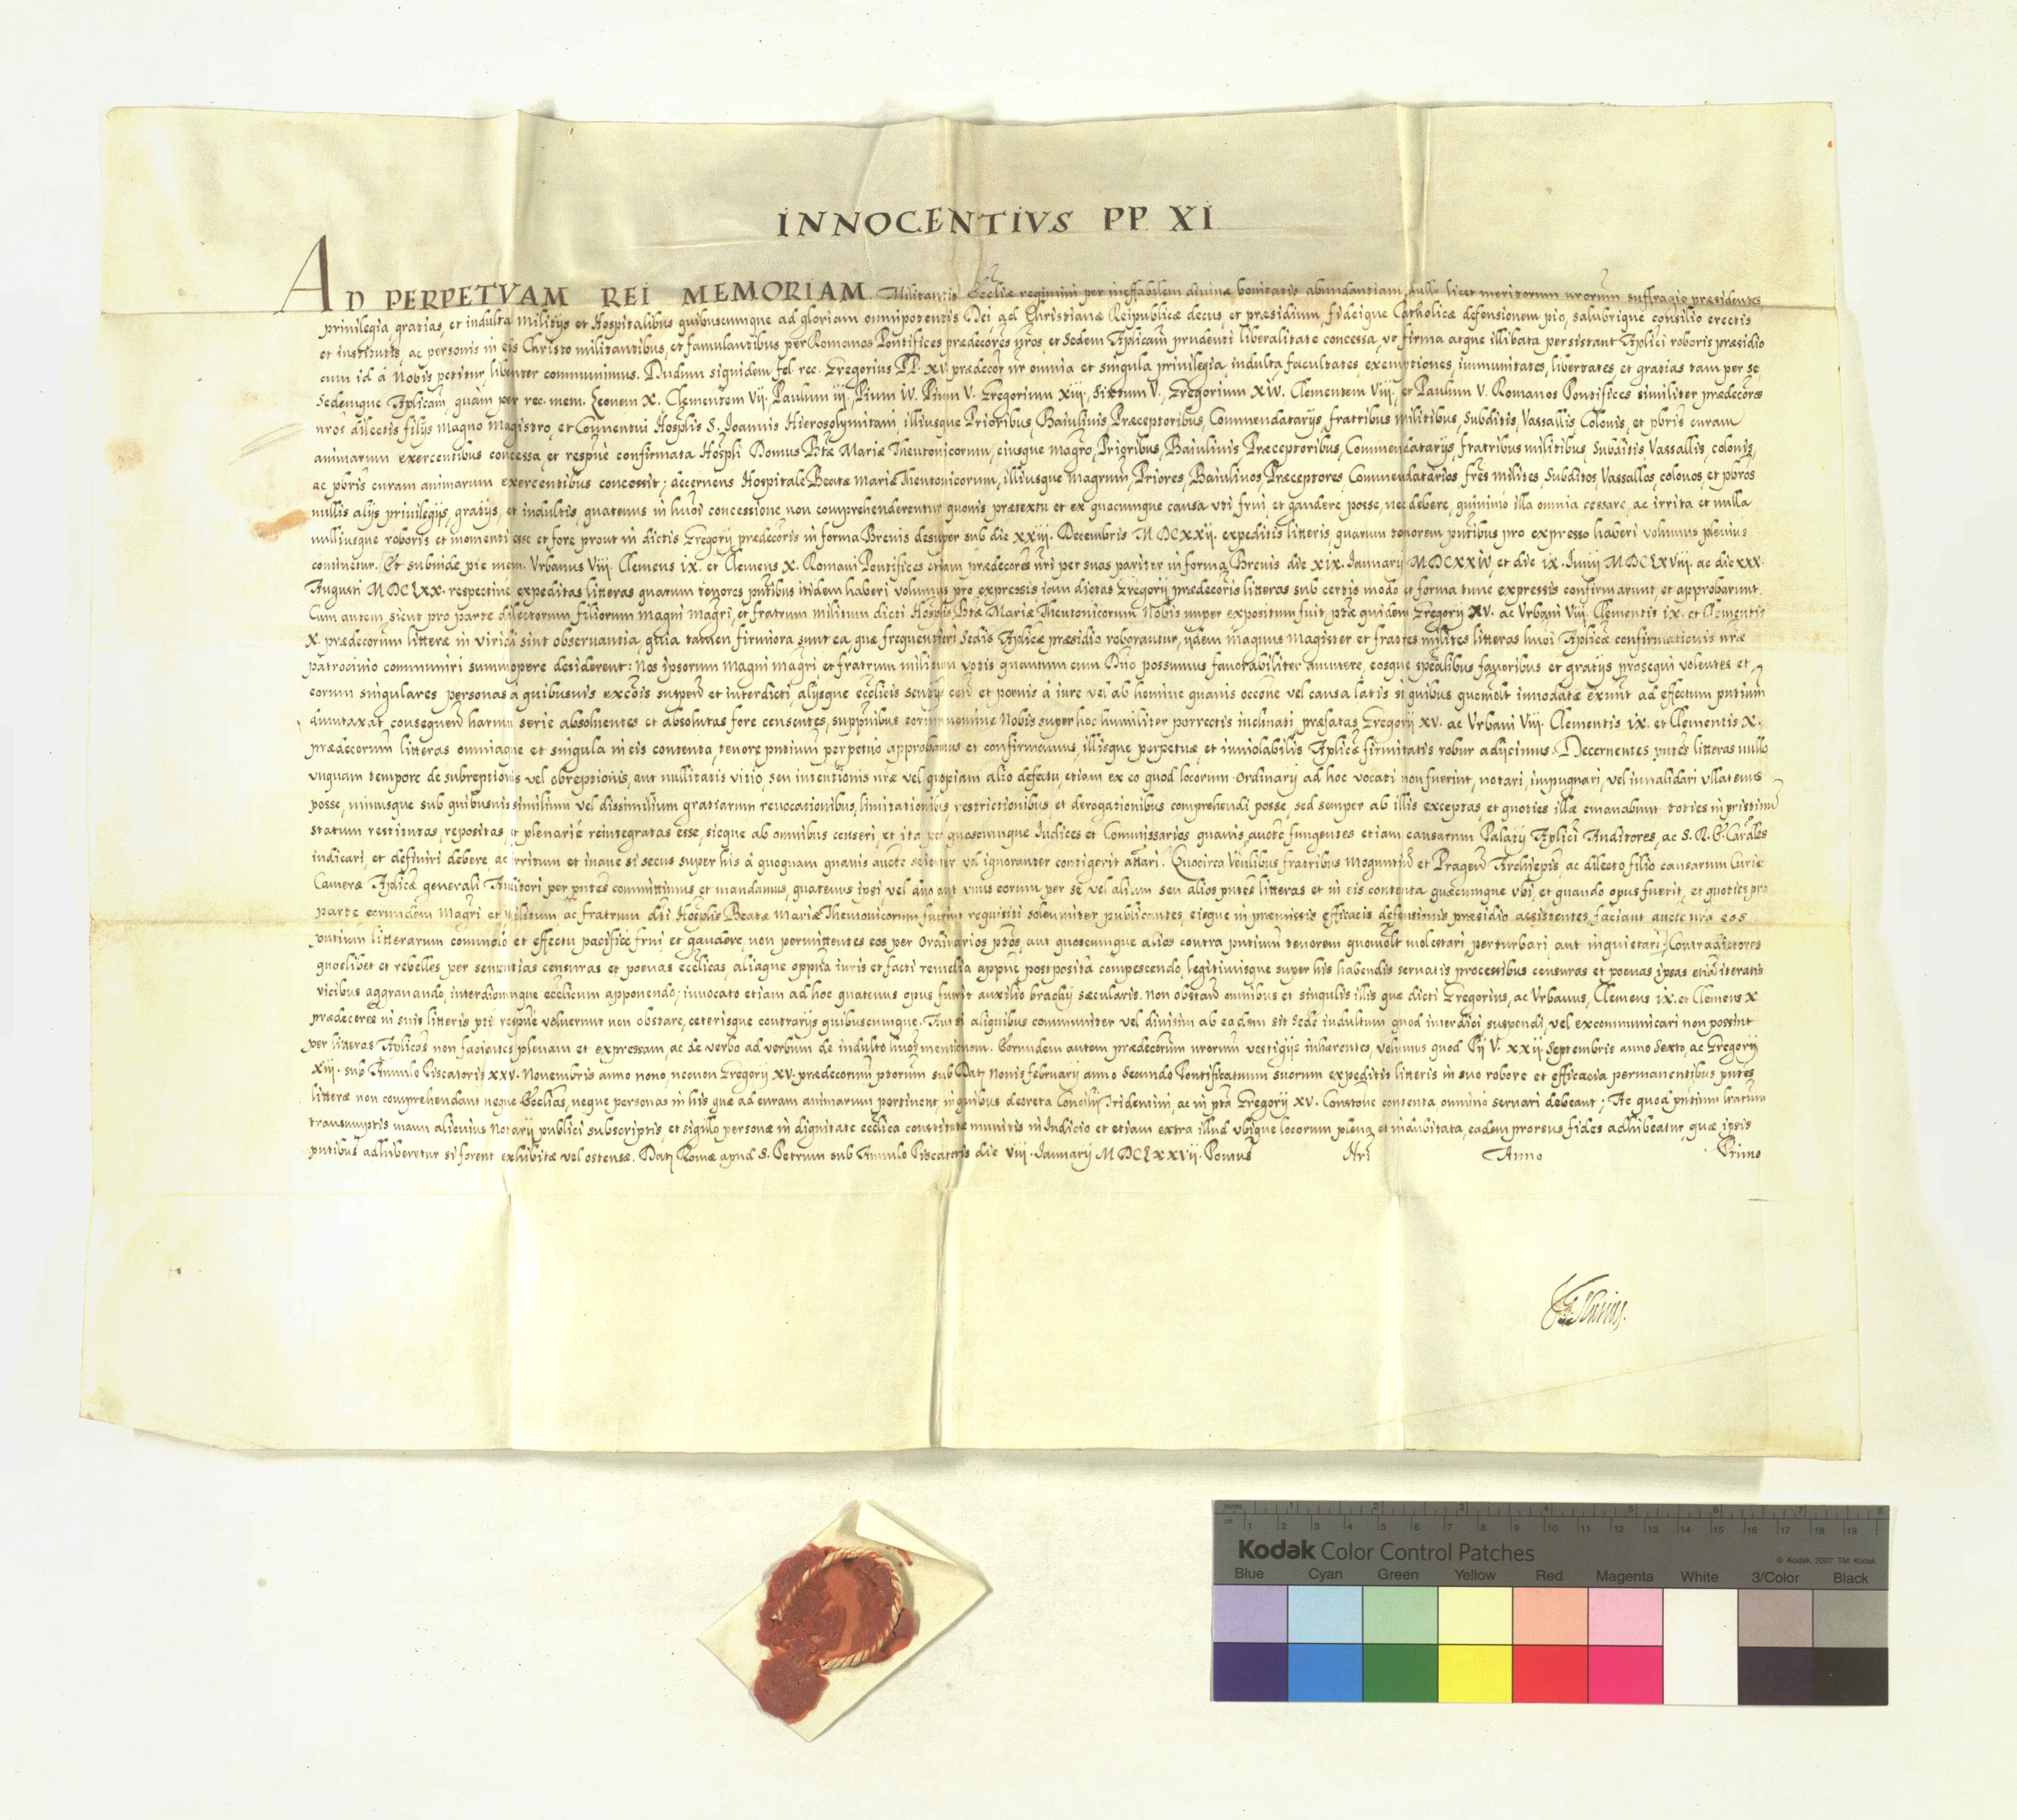 INNOCENTIVS PP XI
AD PERPETVAM REI MEMORIAM Militantis Eccliæ regimini per ineffabilem diuinæ bonitatis abundantiam, nullo licet meritorum nrorum suffragio præsidentes
priuilegia, gratias, et indulta Militijs et Hospitalibus quibuscumque ad gloriam omnipotentis Dei, ad Christianæ Reipublicæ decus, et præsidium, fideique Catholicæ defensionem pio, salubrique consilio erectis
et institutis, ac personis in eis Christo militantibus, et famulantibus per Romanos Pontifices prædecores nros, et Sedem Aplicam prudenti liberalitate concessa, vt firma atque illibata persistant Aplici roboris præsidio
cum id à Nobis petitur, libenter communimus. Dudum siquidem fel. rec. Gregorius PP. XV. prædecor nr omnia et singula priuilegia, indulta, facultates, exemptiones, immunitates, libertates, et gratias tam per se,
Sedemque Aplicam, quam per rec. mem. Leonem X. Clementem Vij. Paulum iij. Pium iV. Pium V. Gregorium Xiij. Sixtum V. Gregorium XiV. Clementem Viij. et Paulum V. Romanos Pontifices similiter prædecores
nros dilectis filijs Magno Magistro, et Conuentui Hosplis S. Joannis Hierosolymitani, illiusque Prioribus, Baiuliuis, Præceptoribus, Commendatarijs, fratribus Militibus, Subditis, Vassallis, Collonis, et pbris curam
animarum exercentibus concessa, et respue confirmata Hospli Domus Btæ Mariæ Theutonicorum, eiusque Magro, Prioribus, Baiuliuis, Præceptoribus, Commendatarijs, fratribus militibus, Subditis, Vassallis, colonis,
ac pbris curam animarum exercentibus concessit; decernens Hospitale Beatæ Mariæ Theutonicorum, illiusque Magrum, Priores, Baiuliuos, Præceptores, Commendatarios, fres milites, Subditos, Vassallos, colonos, et pbros
nullis alijs priuilegijs, gratijs, et indultis, quatenus in huoi concessione non comprehenderentur quouis prætextu et ex quacunque causa vti, frui, et gaudere posse, nec debere, quinimò illa omnia cessare, ac irrita et nulla
nulliusque roboris et momenti esse et fore prout in dictis Gregorij prædecoris in forma Breuis desuper sub die XXiij. Decembris MDCXXij. expeditis litteris, quarum tenorem pntibus pro expresso haberi volumus plenius
continetur. Et subinde pie mem. Vrbanus Viij. Clemens iX. et Clemens X. Romani Pontifices etiam prædecores nri per suas pariter in forma Breuis die XiX. Januarij MDCXXiV, et die iX. Junij MDCLXViij. ac die XXX.
Augusti MDCLXX. respectiue expeditas litteras quarum tenores pntibus itidem haberi volumus pro expressis iam dictas Gregorij prædecoris litteras sub certis modo et forma tunc expressis confirmarunt, et approbarunt.
Cum autem, sicut pro parte dilectorum filiorum Magni Magri, et fratrum militum dicti Hosplis Btæ Mariæ Theutonicorum Nobis nuper expositum fuit, ptæ quidem Gregorij XV. ac Vrbani Viij. Clementis iX. et Clementis
X. prædecorum litteræ in viridi sint obseruantia, quia tamen firmiora sunt ea, quæ frequentiori Sedis Aplicæ præsidio roborantur, ijdem Magnus Magister et fratres milites litteras huoi Aplicæ confirmationis nræ
patrocinio communiri summopere desiderent: Nos ipsorum Magni Magri, et fratrum militum votis quantum cum Dno possumus fauorabiliter annuere, eosque spealibus fauoribus et gratijs prosequi volentes et
eorum singulares personas à quibusuis excois suspen et interdicti, alijsque ecclicis sentijs cen et poenis à iure vel ab homine quauis occone vel causa latis si quibus quomolt innodatæ exnt ad effectum pntium
dumtaxat consequen harum serie absoluentes et absolutas fore censentes, supplnibus eorum nomine Nobis super hoc humiliter porrectis inclinati, præfatas Gregorij XV. ac Vrbani Viij. Clementis iX. et Clementis X.
prædecorum litteras omniaque et singula in eis contenta, tenore pntium perpetuò approbamus et confirmamus, illisque perpetuæ et inuiolabilis Aplicæ firmitatis robur adijcimus. Decernentes pntes litteras nullo
vnquam tempore de subreptionis vel obreptionis, aut nullitatis vitio, seu intentionis nræ vel quopiam alio defectu, etiam ex eo quod locorum Ordinarij ad hoc vocati non fuerint, notari, impugnari, vel inualidari vllatenus
posse, minusque sub quibusuis similium vel dissimilium gratiarum reuocationibus, limitationibus, restrictionibus et derogationibus comprehendi posse sed semper ab illis exceptas, et quoties illæ emanabunt toties in pristinu
statum restitutas, repositas et plenariè reintegratas esse, sicque ab omnibus censeri, et ita per quoscumque Judices et Commissarios quauis aucte fungentes etiam causarum Palatij Aplici Auditores, ac S. R. E. Cardles
iudicari, et definiri debere ac irritum et inane si secus super his à quoquam quauis aucte scienter vel ignoranter contigerit attari. Quocirca Venlibus fratribus Moguntin et Pragen Archiepis, ac dilecto filio causarum Curiæ
Cameræ Aplicæ generali Auditori per pntes committimus et mandamus, quatenus ipsi, vel duo aut vnus eorum per se vel alium seu alios pntes litteras et in eis contenta quæcumque vbi, et quando opus fuerit, et quoties pro
parte eorundem Magri et Militum ac fratrum dti Hosplis Beatæ Mariæ Theutonicorum fuerint requisiti solemniter publicantes, eisque in præmissis efficacis defensionis præsidio assistentes, faciant aucte nra eos
pntium litterarum commolo et effectu pacificè frui et gaudere, non permittentes eos per Ordinarios ptos, aut quoscumque alios contra pntium tenorem quomolt molestari, perturbari, aut inquietari. Contradictores
quoslibet et rebelles per sententias censuras et poenas ecclicas, aliaque oppna iuris et facti remedia appne postposita compescendo, legitimisque super his habendis seruatis processibus censuras et poenas ipsas etia iteratis
vicibus aggrauando, interdictumque ecclicum apponendo; inuocato etiam ad hoc quatenus opus fuerit auxilio brachij sæcularis. Non obstan omnibus et singulis illis quæ dicti Gregorius, ac Vrbanus, Clemens iX. et Clemens X
prædecores in suis litteris ptis respue voluerunt non obstare, ceterisque contrarijs quibuscumque. Aut si aliquibus communiter vel diuisim ab eadem sit Sede indultum quod interdici, suspendi, vel excommunicari non possint
per litteras Aplicas non facientes plenam et expressam, ac de verbo ad verbum de indulto huoi mentionem. Eorundem autem prædecorum nrorum vestigijs inhærentes, volumus quod Pij V. XXij. Septembris anno Sexto, ac Gregorij
Xiij. sub Annulo Piscatoris XXV. Nouembris anno nono, necnon Gregorij XV. prædecorum ptorum sub Dat Nonis februarij anno Secundo Pontificatuum suorum expeditis litteris in suo robore et efficacia permanentibus pntes
litteræ non comprehendant neque Ecclias, neque personas in his quæ ad curam animarum pertinent, in quibus decreta Concilij Tridentini, ac in pta Gregorij XV. Constone contenta omnino seruari debeant; Ac quod pntium lrarum
transumptis manu alicuius Notarij publici subscriptis, et sigillo personæ in dignitate ecclica constitutæ munitis in Judicio et etiam extra illud vbique locorum plena et indubitata, eadem prorsus fides adhibeatur, quæ ipsis
pntibus adhiberetur si forent exhibitæ vel ostensæ. Dat Romæ apud S. Petrum sub Annulo Piscatoris die Viij. Januarij MDCLXXVij. Pontus Nri Anno Primo
inches 1 2 3 4 5 6 7 8
cm 1 2 3 4 5 6 7 8 9 10 11 12 13 14 15 16 17 18 19
Kodak Color Control Patches © Kodak, 2007 TM: Kodak
Blue Cyan Green Yellow Red Magenta White 3/Color Black